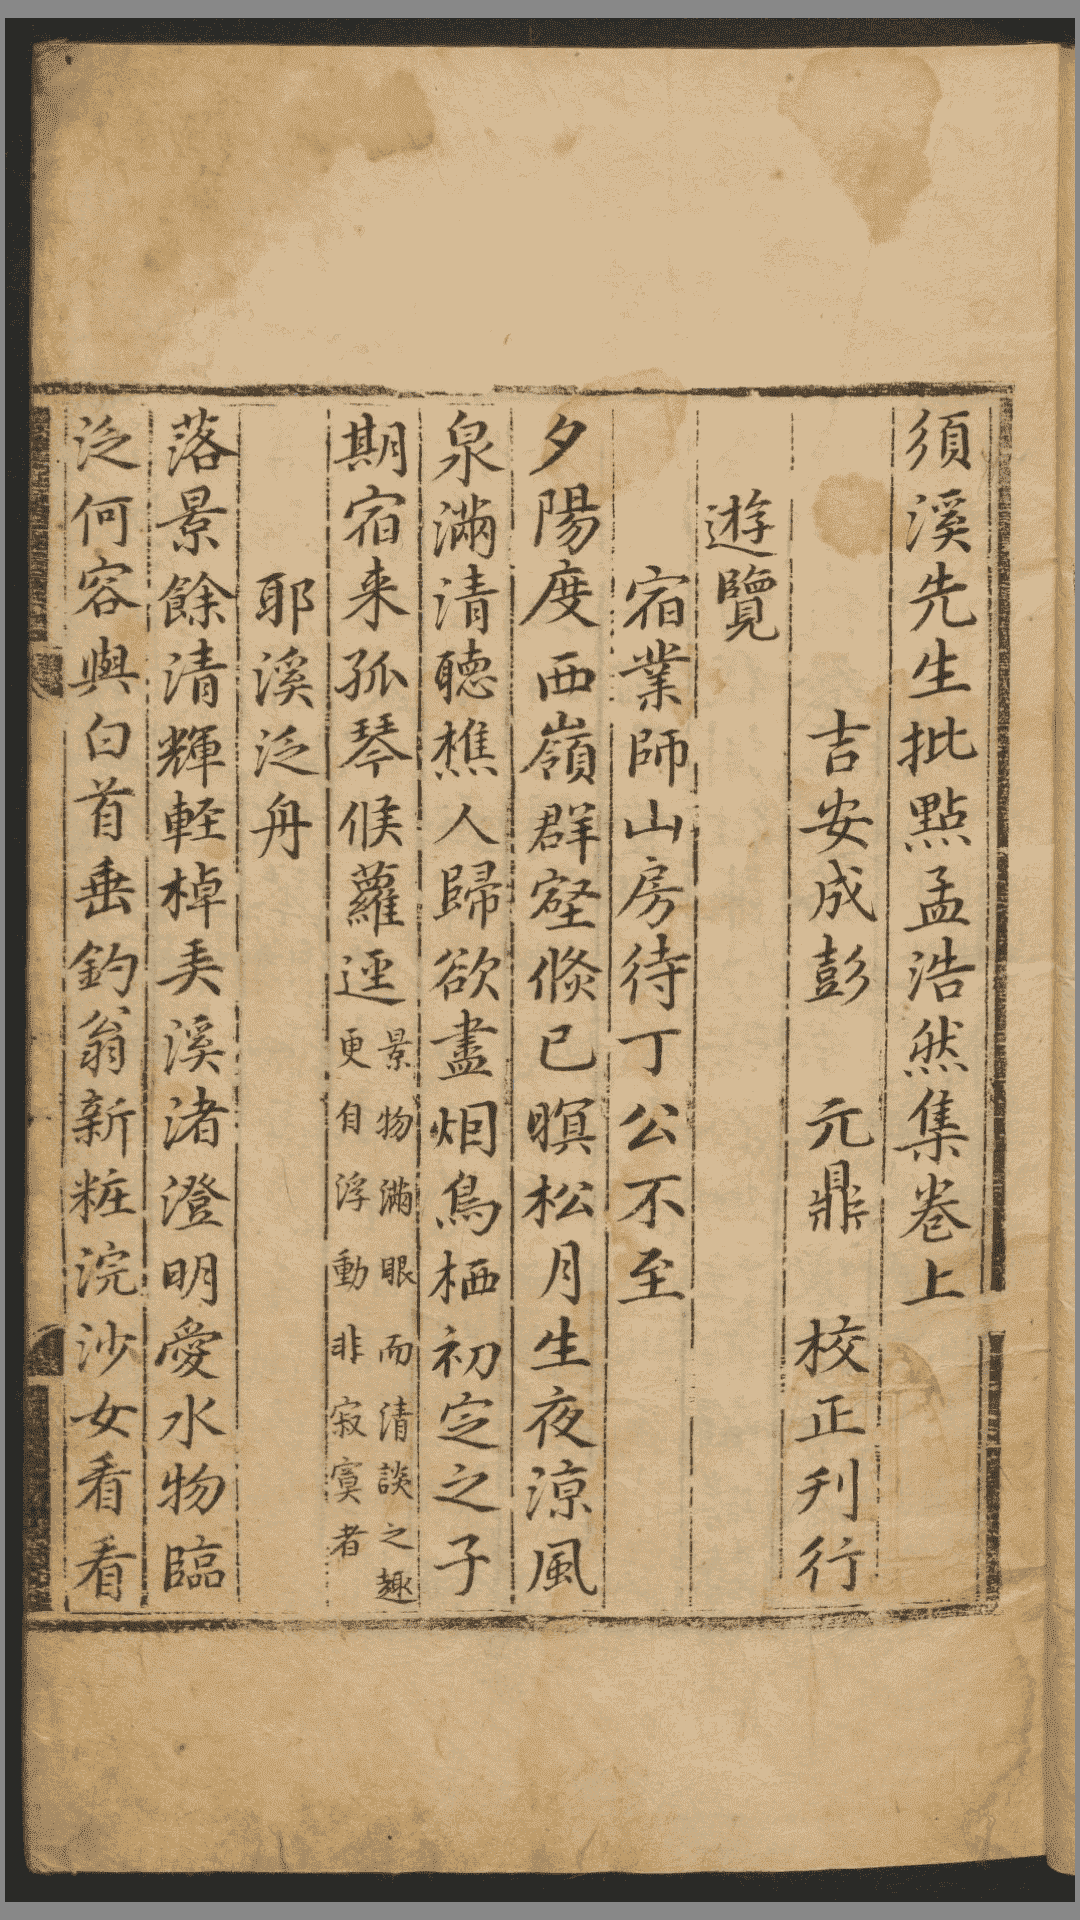 須溪先生批點孟浩然集卷上
吉安成彭 元鼎 校正刋行
遊覽
宿業師山房待丁公不至
夕陽度西嶺群壑倐已暝松月生夜涼風
泉滿清聽樵人歸欲盡烟鳥栖初定之子
期宿来孤琴候蘿逕
景物滿眼而清談之趣
更自浮動非寂寞者
耶溪泛舟
落景餘清輝輊棹弄溪渚澄明愛水物臨
泛何容與白首垂釣翁新粧浣沙女看看